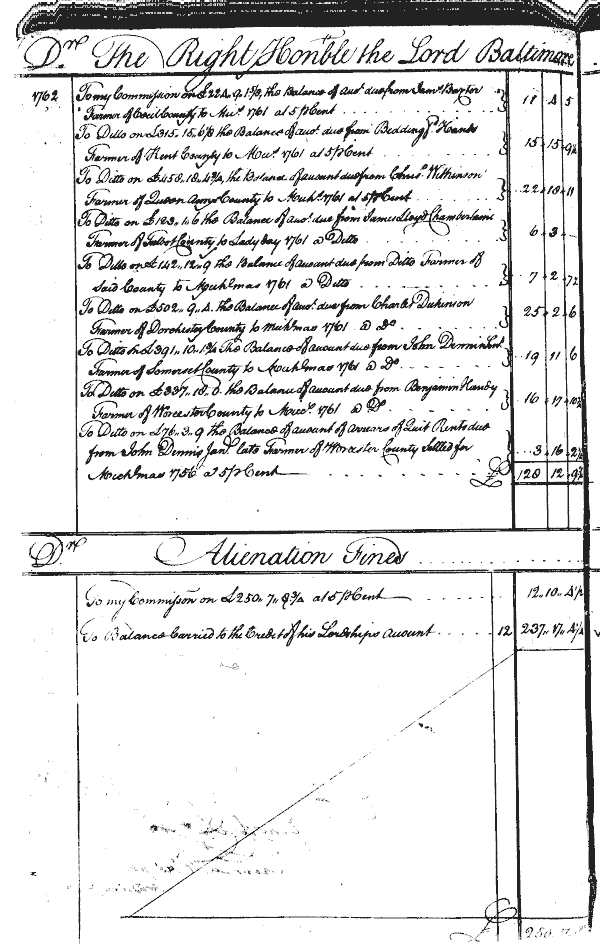 Dr. The Right Honble the Lord Baltimore
1762 To my Commission on £224.9.1 the Balance of Acct due from
Farmer of Cecil County to Mics 1761 at 5 p Cent . . . 11 4 5
To Ditto on £315.15.6 the Balance of Acct due from Bedding Hands
Farmer of Kent County to Mics 1761 at 5 p Cent 15 15 9½
To Ditto on £458.18.4¾ the Balance of account due from Chrisr Wilkinson
Farmer of Queen Anns County to Michs 1761 at 5 p Cent 22 18 11
To Ditto on £123.. 4.6 the Balance of Acct due from James Lloyd Chamberlaine
Farmer of Talbot County to Lady day 1761 @ Ditto 6 3 -
To Ditto on £142..12..9 the Balance of account due from Ditto Farmer of
Said County to Michlmas 1761 @ Ditto 7 2 7½
To Ditto on £502..9..4 the Balance of Acct due from Charles Dickinson
Farmer of Dorchester County to Michlmas 1761 @ Do 25 2 6
To Ditto on £391..10..1¾ The Balance of account due from John Dennis
Farmer of Somerset County to Michlmas 1761 @ Do 19 11 6
To Ditto on £337..18..0 the Balance of account due from Benjamin Handy
Farmer of Worcester County to Mics 1761 @ Do 16 17 10¾
To Ditto on £76..3..9 the Balance of account of arrears of Quit Rents due
from John Dennis Junr late Farmer of Worcester County Settled for 3 16 2¼
Michlmas 1756 at 5 p Cent £ 128 12 9¾
Dr. Alienation Fines
To my Commission on £250.. 7.. 8¾ at 5 p Cent 12..10..4½
To Balance Carried to the Credit of his Lordships Account 12 237..17..4¼
£ 250 7